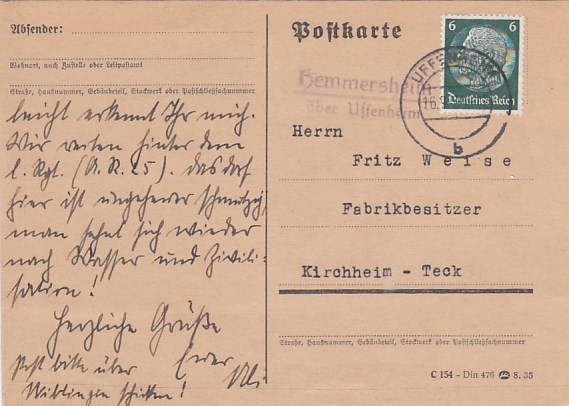 Absender:
Wohnort, auch Zustell- oder Leitpostamt
Straße, Hausnummer, Gebäudeteil, Stockwerk oder Postschließfachnummer
leicht erkennt Ihr mich.
Wir reiten hinter dem
l. Rgt. (A. R. 25). Das Dorf
hier ist ungeheuer schmutzig,
man sehnt sich wieder
nach Wasser und Zivili-
sation!
Herzliche Grüße
Euer
Post bitte über
Wiblingen schicken!
Postkarte
6 6
Deutsches Reich
UFFENHEIM
16.
b
Hemmersheim
über Uffenheim
Herrn
Fritz Weise
Fabrikbesitzer
Kirchheim - Teck
Straße, Hausnummer, Gebäudeteil, Stockwerk oder Postschließfachnummer
C 154 - Din 476 8. 35